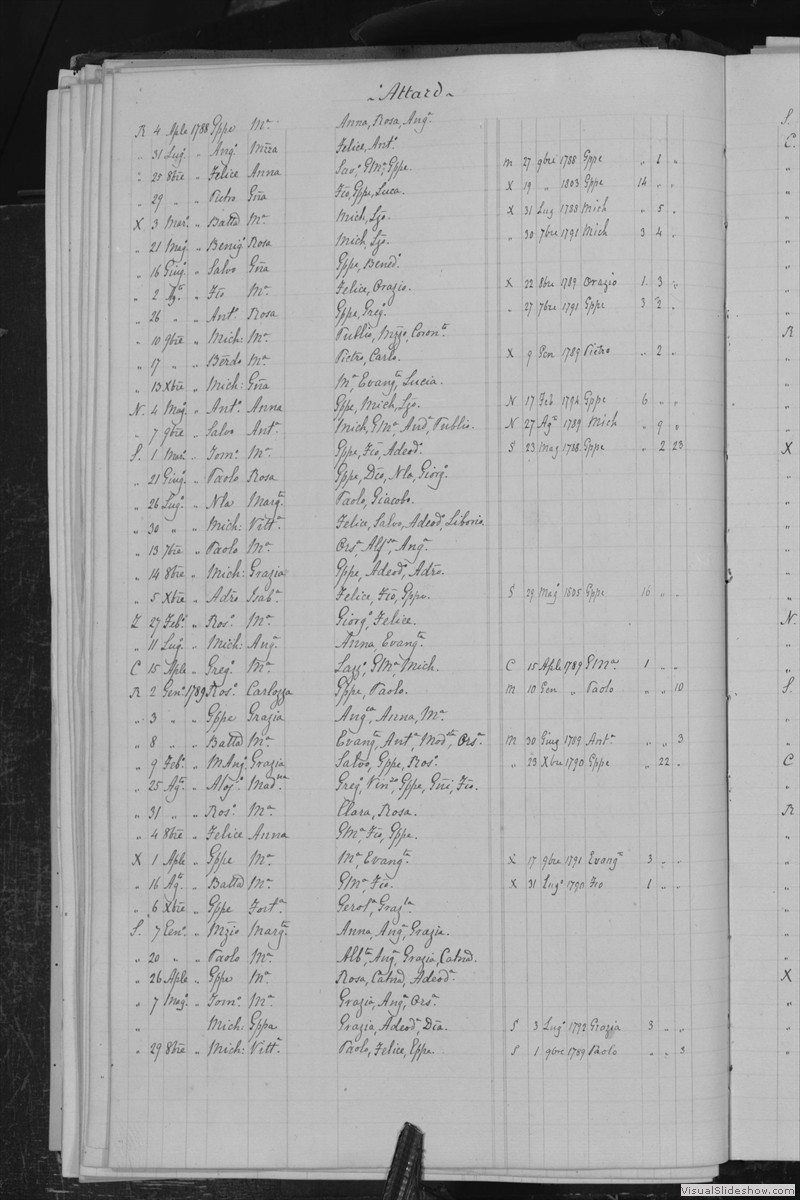 Attard
R 4 Aple 1788 Gppe Ma Anna, Rosa, Anga
" 31 Lugo " Ango Mzza Felice, Anto
" 25 8bre " Felice Anna Savo, GMa, Gppe m 27 9bre 1788 Gppe " 1 "
" 29 " " Pietro Gña Fco, Gppe, Luca. X 19 " 1803 Gppe 14 " "
X 3 Mar. " Batta Ma Mich, Lzo. X 31 Lug 1788 Mich " 5 "
" 21 Mago " Benigo Rosa Mich, Lzo. " 30 7bre 1791 Mich 3 4 "
" 16 Giugo " Salvo Gña Gppe, Bened.
" 2 Agto " Fco Ma Felice, Orazio. X 22 8bre 1789 Orazio 1 3 "
" 26 " " Anto Rosa Gppe, Grego " 27 7bre 1791 Gppe 3 2 "
" 10 9bre " Mich: Ma Publio, Mzzo, Corona
" 17 " " Berdo Ma Pietro, Carlo. X 9 Gen 1789 Pietro " 2 "
" 13 Xbre " Mich: Gña Ma, Evanga, Lucia.
N. 4 Mago " Anto Anna Gppe, Mich, Lzo. N 17 Feb 1794 Gppe 6 " "
" 7 9bre " Salvo Anta Mich, GMa, And, Publio. N 27 Agto 1789 Mich " 9 "
S. 1 Mar. " Tomo Ma Gppe, Fco, Adeodo S 23 Mag 1788 Gppe " 2 23
" 21 Giugo " Paolo Rosa Gppe, Dco, Nla, Giorgo
" 26 Lugo " Nla Marga Paolo, Giacobo.
" 30 " " Mich: Vitta Felice, Salvo, Adeod, Liboria
" 13 7bre " Paolo Ma Orsa, Alfsa, Anga
" 14 8bre " Mich: Grazia Gppe, Adeodo, Adro.
" 5 Xbre " Adro Isaba Felice, Fco, Gppe. S 29 Mago 1805 Gppe 16 " "
Z 27 Febo " Roso Ma Giorgo, Felice.
" 11 Lugo " Mich: Anga Anna, Evanga
C 15 Aple " Grego Ma Lazzo, GMa, Mich. C 15 Aple 1789 GMa 1 " "
R 2 Geno 1789 Roso Carlozza Gppe, Paolo. m 10 Gen " Paolo " " 10
" 3 " " Gppe Grazia Angca, Anna, Ma
" 8 " " Batta Ma Evanga, Anta, Modta, Orsa m 30 Giug 1789 Anta " " 3
" 9 Febo " MAngo Grazia Salvo, Gppe, Roso " 23 Xbre 1790 Gppe " 22 "
" 25 Agto " Alojo Madna Grego, Vinzo, Gppe, Gñi, Fco.
" 31 " " Roso Ma Clara, Rosa.
" 4 8bre " Felice Anna GMa, Fco, Gppe.
X 1 Aple " Gppe Ma Ma, Evanga X 17 9bre 1791 Evanga 3 " "
" 16 Agto " Batta Ma GMa, Fco. X 31 Lugo 1790 Fco 1 " "
" 6 Xbre " Gppe Forta Gerola, Grazla
S. 7 Geno " Mzio Marga Anna, Anga, Grazia.
" 20 " " Paolo Ma Alba, Anga, Grazia, Catnd.
" 26 Aple " Gppe Ma Rosa, Catnd, Adeoda
" 7 Mago " Tomo Ma Grazia, Anga, Orsa
" Mich: Gppa Grazia, Adeoda, Dca. S 3 Lugo 1792 Grazia 3 " "
" 29 8bre " Mich: Vitta Paolo, Felice, Gppe. S 1 9bre 1789 Paolo " " 3
S.
C.
R
X
N.
S.
C
R
X
VisualSlideshow.com